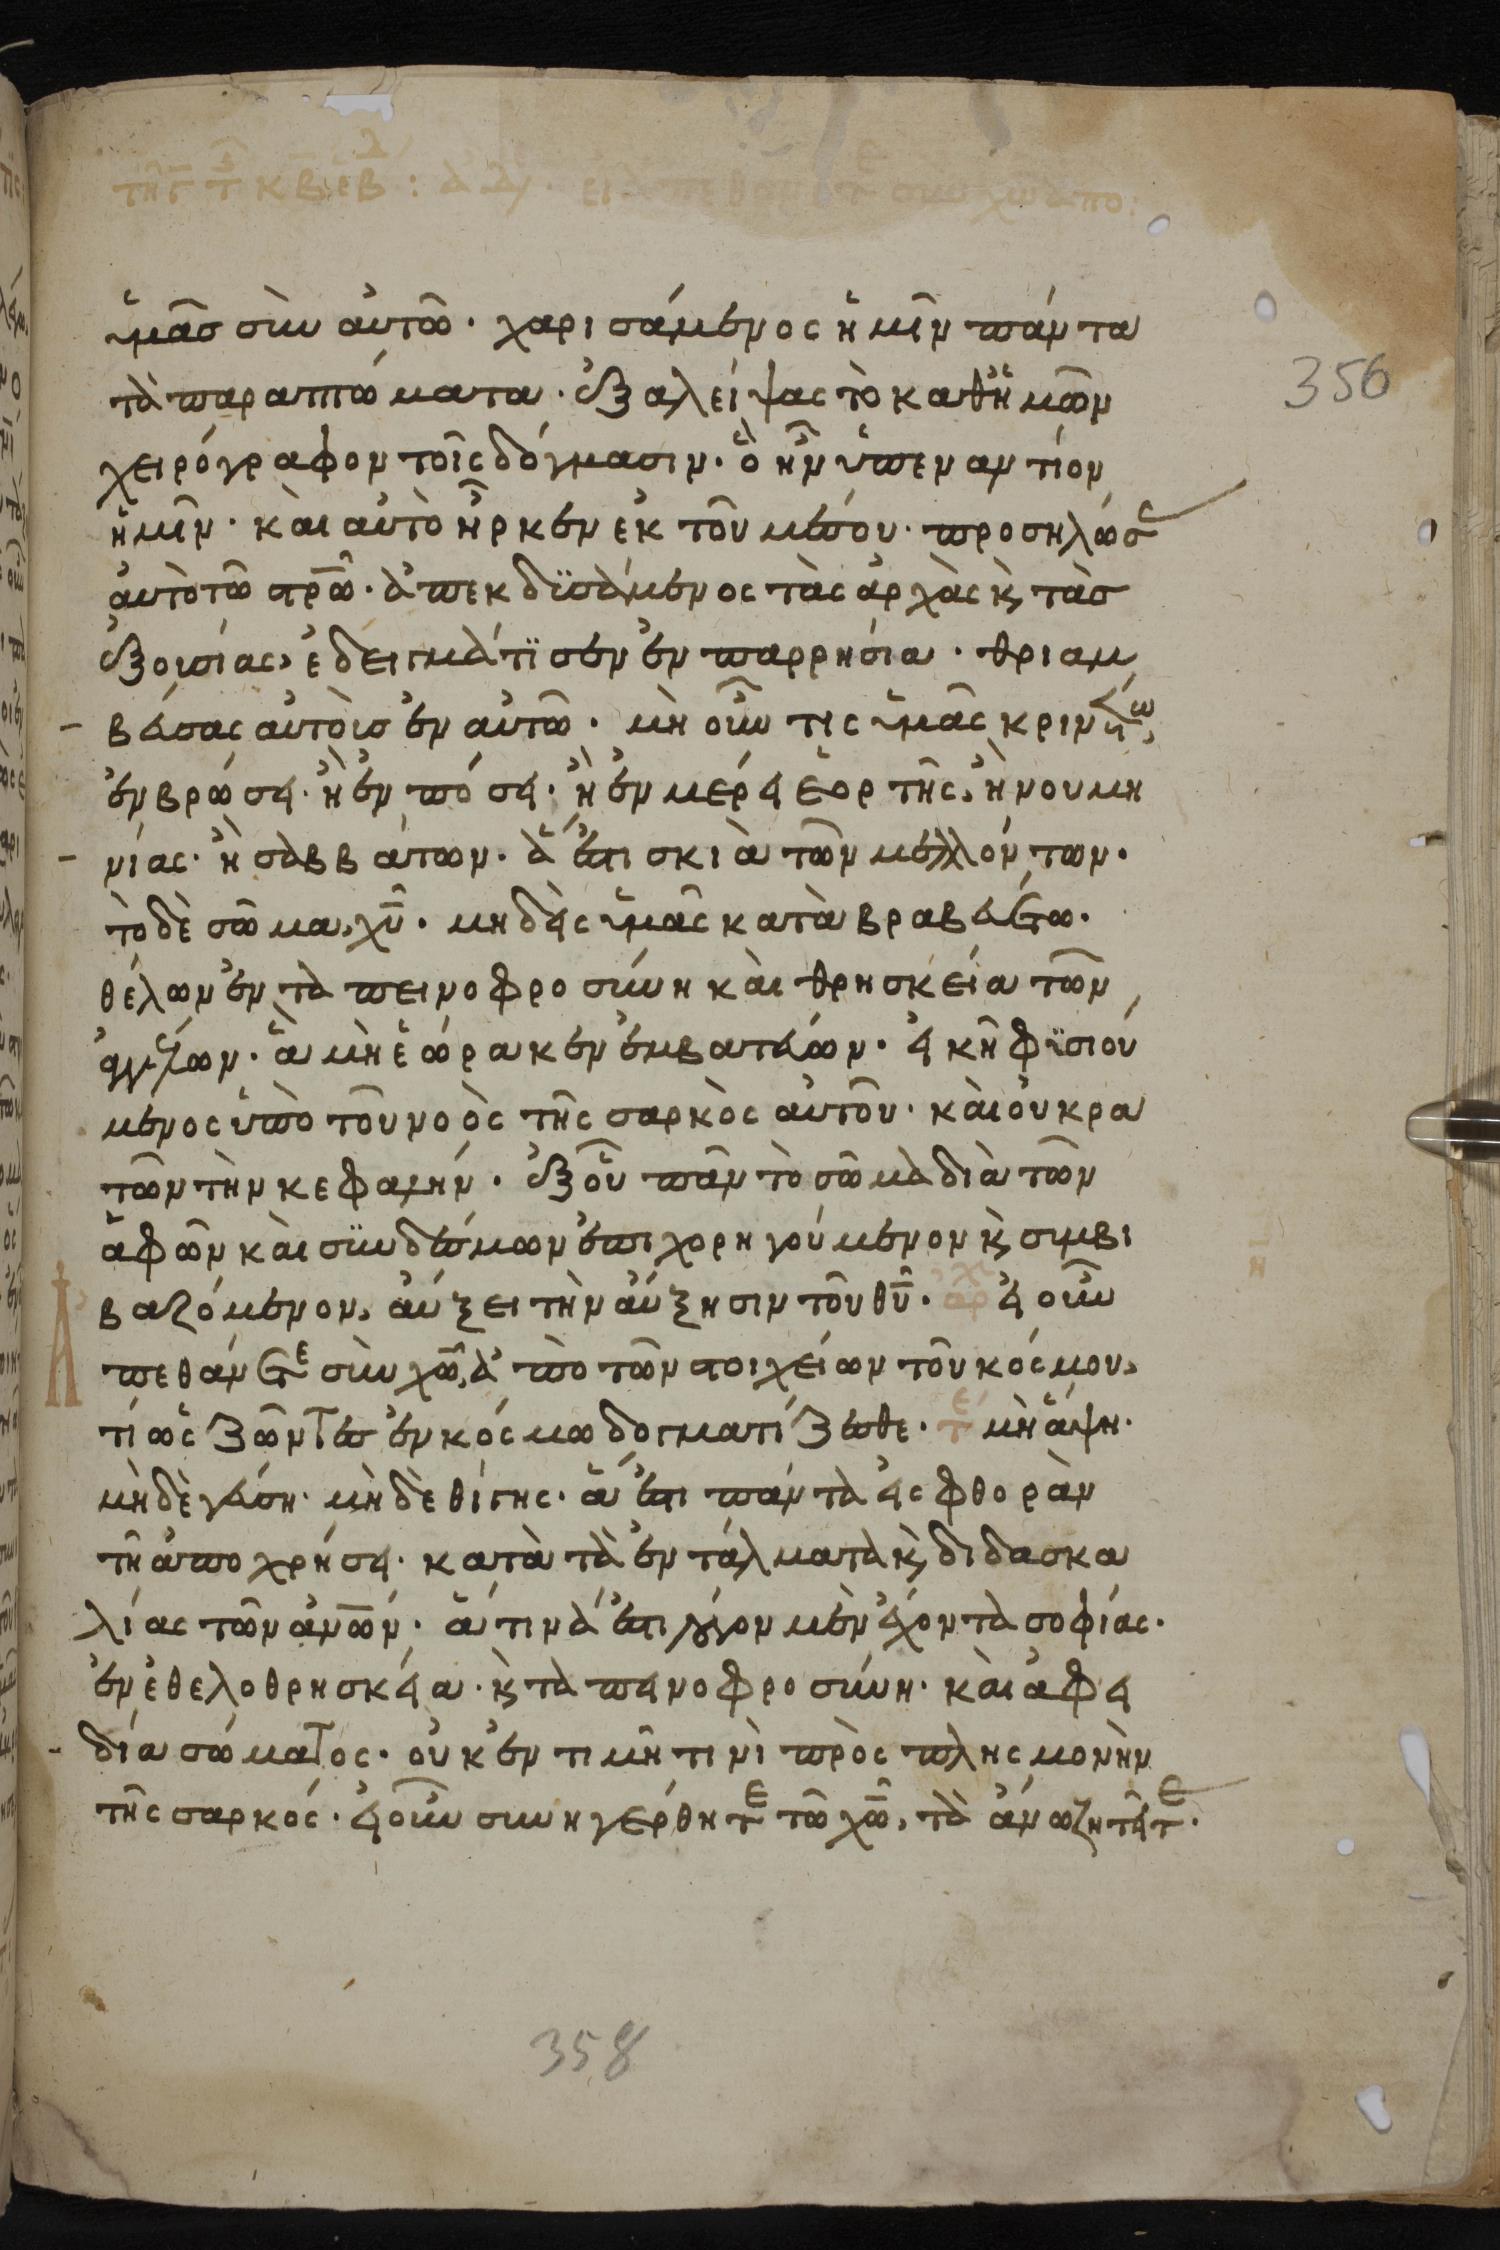 ὑμᾶσ σὺν αὐτῶ · χαρισάμενος ἡμῖν πάντα
τὰ παραπτώματα · ἐξαλείψας τὸ καθ ἡμῶν
χειρόγραφον τοῖς δόγμασιν · ὃ ἦν ὑπεναντίον
ἡμῖν · καὶ αὐτὸ ἦρκεν ἐκ τοῦ μέσου · προσηλώσς
αὐτὸ τῶ στρῶ · ἀπεκδϋσάμενος τὰς ἀρχὰς κ τὰσ
ἐξουσίας, ἐδειγμάτϊσεν ἐν παρρησία · θριαμ
βεύσας αὐτοὺσ ἐν αὐτῶ · μὴ οὖν τις ὑμᾶς κρινέτω,
ἐν βρώσει · ἢ ἐν πόσει · ἢ ἐν μέρει ἑορτῆς, ἢ νουμη
νίας · ἢ σαββάτων · ἅ ἐστι σκιὰ τῶν μελλόντων ·
τὸ δὲ σῶμα, χῦ · μηδεὶς ὑμᾶς καταβραβευέτω ·
θέλων ἐν ταπεινοφροσύνη καὶ θρησκεία τῶν
ἀγγέλων · ἃ μὴ ἑώρακεν ἐμβατεύων · εἰκῆ φϋσιού
μενος ὑπὸ τοῦ νοὸς τῆς σαρκὸς αὐτοῦ · καὶ οὐ κρα
τῶν τὴν κεφαλήν · ἐξ οὗ πᾶν τὸ σῶμα διὰ τῶν
ἁφῶν καὶ σϋνδέσμων ἐπιχορηγούμενον κ συμβι
βαζόμενον, αὔξει τὴν αὔξησιν τοῦ θῦ · ἀρχ εἰ οὖν
ἀ πεθάνετε σὺν χῶ, ἀπὸ τῶν στοιχείων τοῦ κόσμου,
τί ὡς ζῶντες ἐν κόσμω δογματίζεσθε · τε μὴ ἅψη ·
μὴ δὲ γεύση · μὴ δὲ θίγης · ἅ ἐστι πάντα εἰς φθορὰν
τῆ ἀποχρήσει · κατὰ τὰ ἐντάλματα κ διδασκα
λίας τῶν ἀνῶν · ἅτινά ἐστι λόγον μὲν ἔχοντα σοφίας ·
ἐν ἐθελοθρησκεία · κ ταπεινοφροσύνη · καὶ ἀφει
δία σώματος · οὐκ ἐν τιμῆ τινὶ πρὸς πλησμονὴν
τῆς σαρκός · εἰ οὖν συνηγέρθητε τῶ χῶ, τὰ ἄνω ζητεῖτε ·
356
358